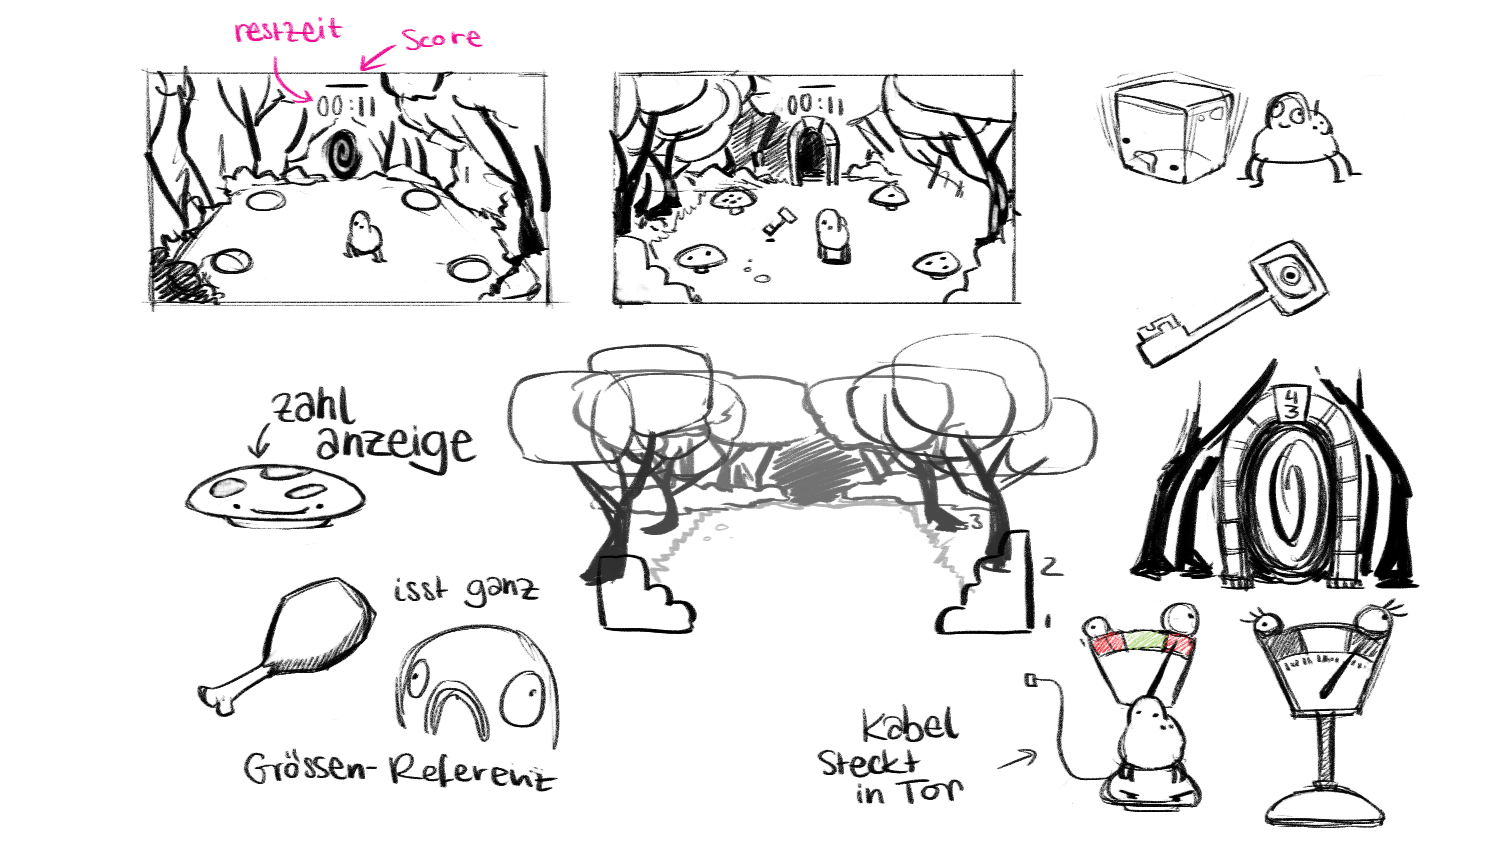 restzeit
Score
00:11
00:11
zahl
anzeige
4
3
3
2
1
isst ganz
Grössen-Referenz
Kabel
steckt
in Tor